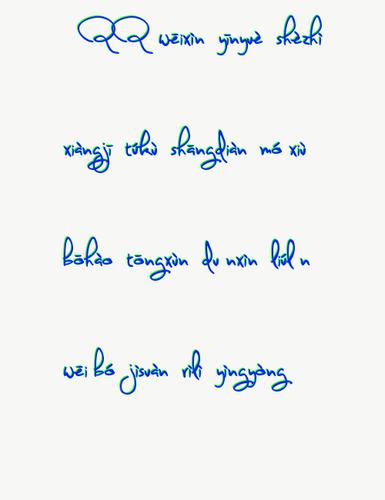 QQ wēixìn yīnyuè shèzhì
xiàngjī túkù shāngdiàn mó xiù
bōhào tōngxùn du nxìn liúl n
wēi bó jìsuàn rìlì yìngyòng